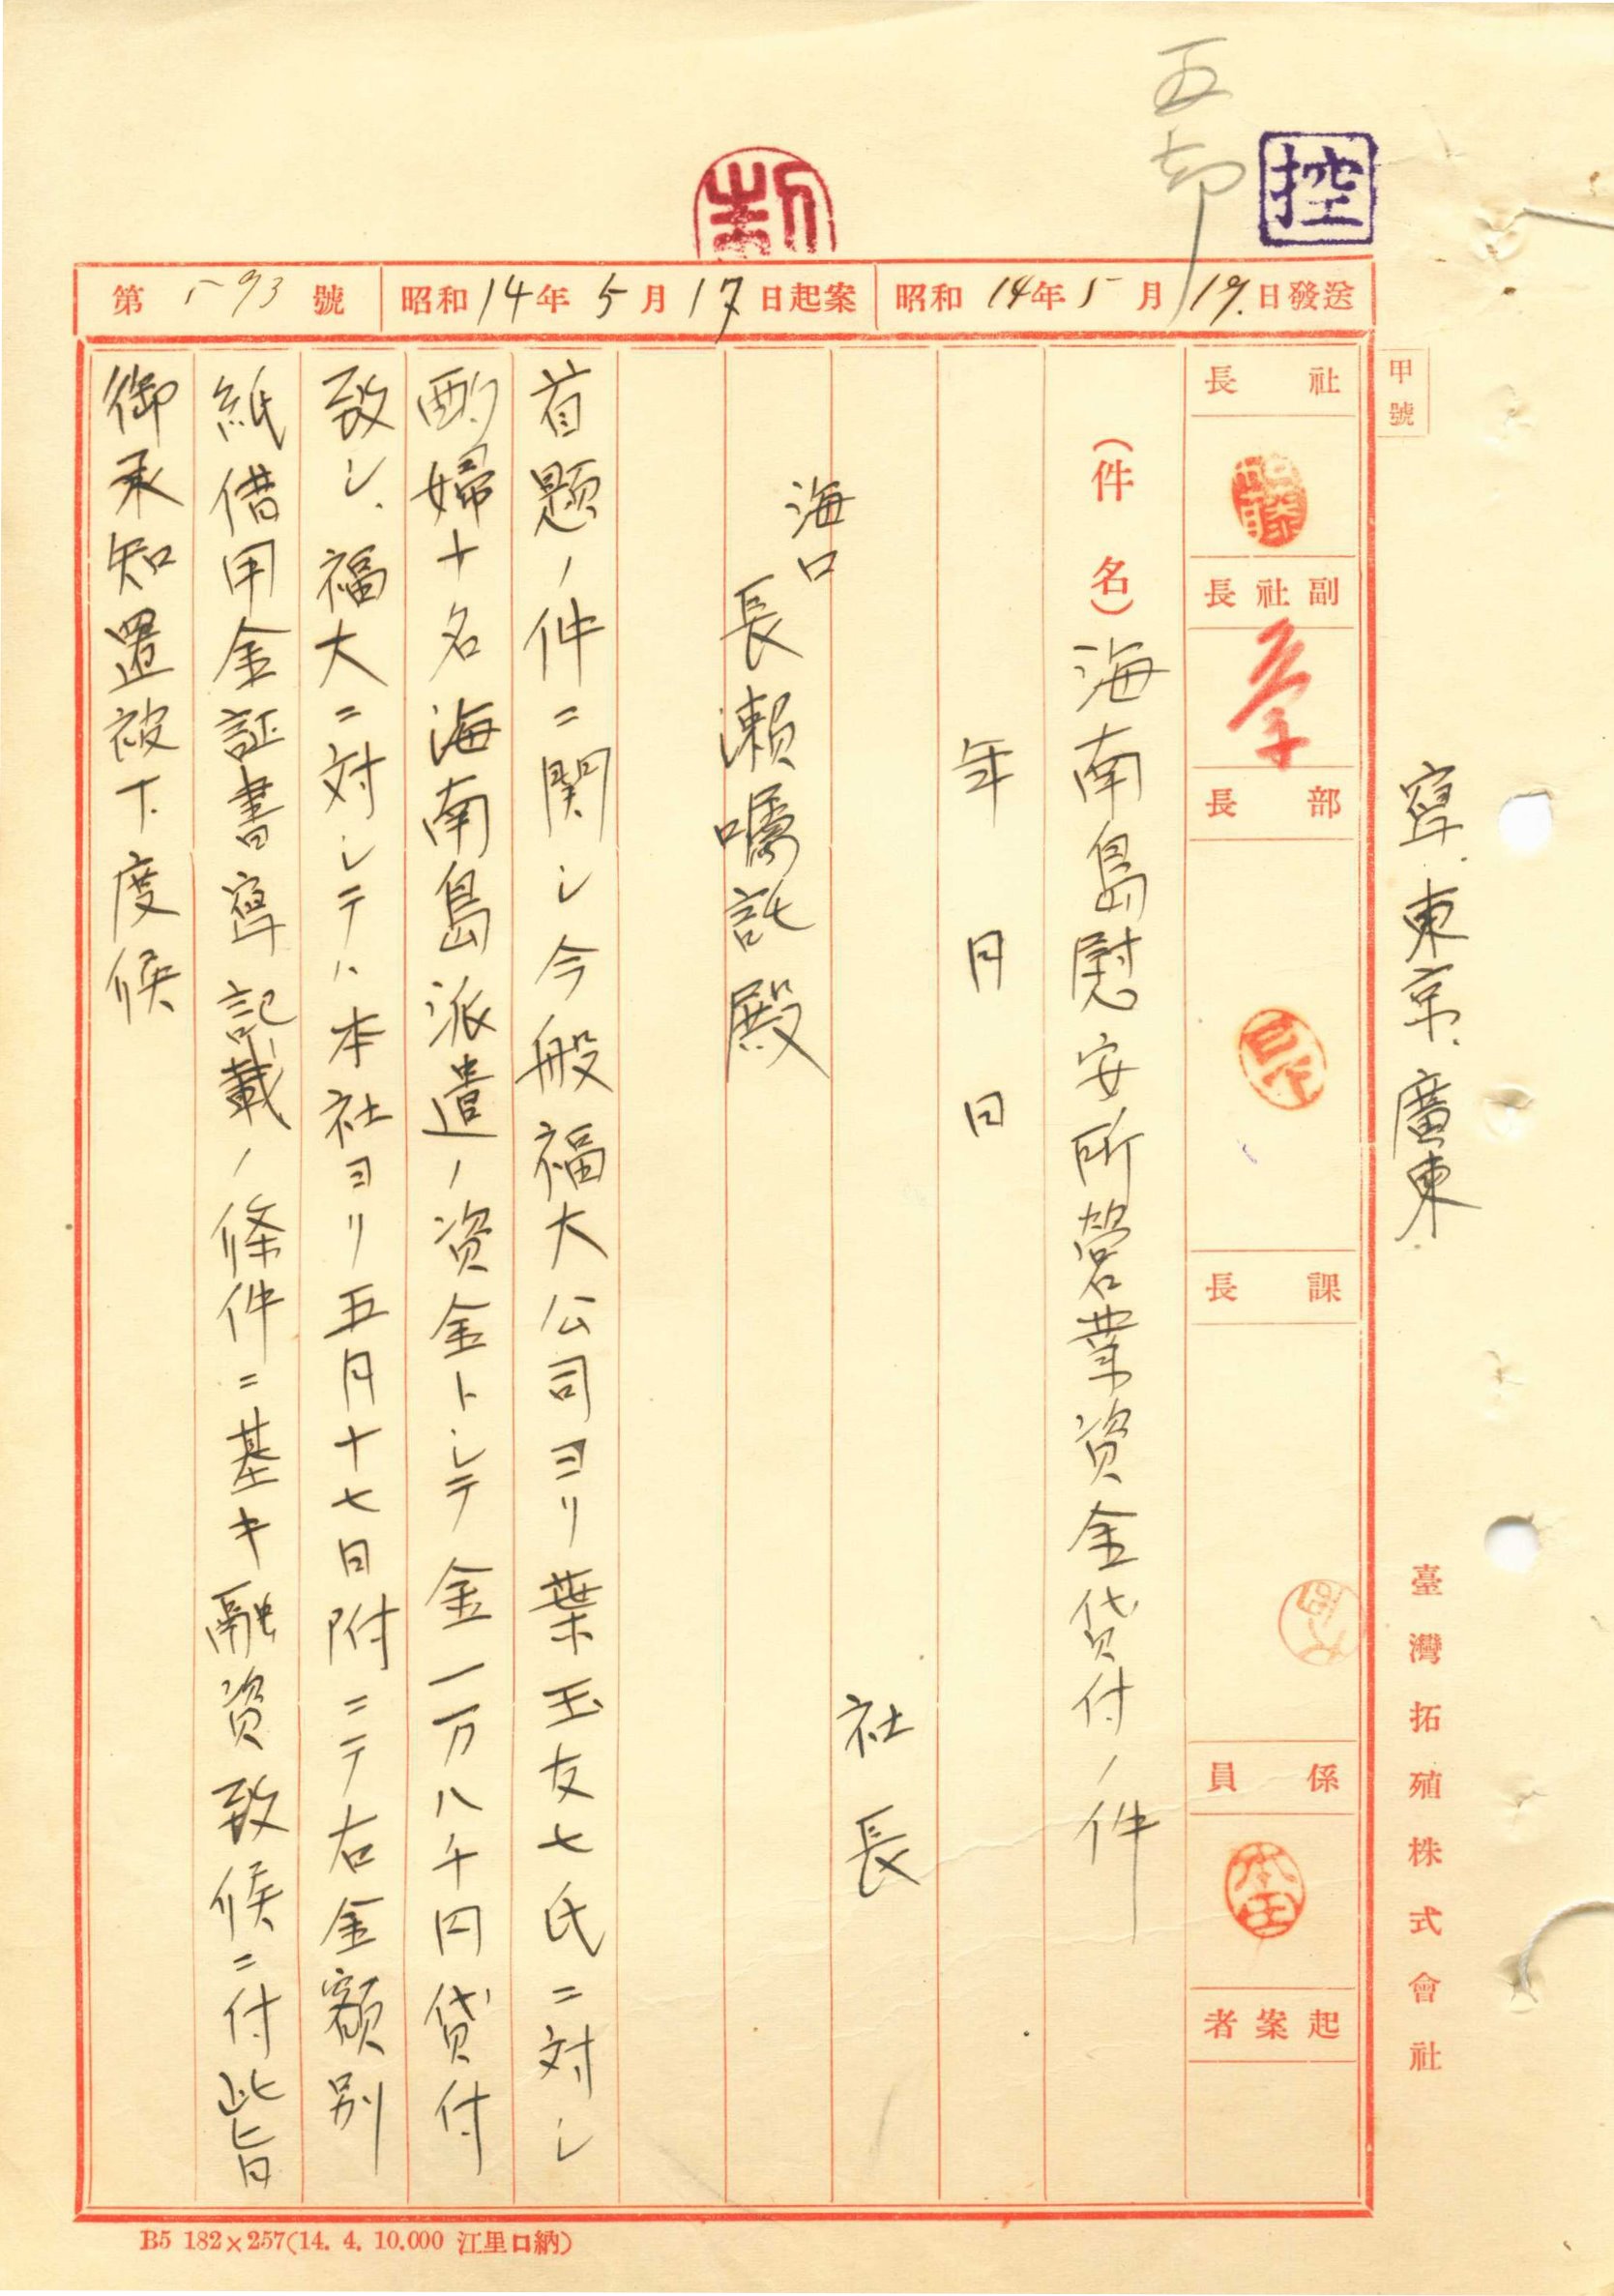 五部
控
第 593 號 昭和14年5月17日起案 昭和14年5月19日發送
甲號
寫 東京 廣東
臺灣拓殖株式會社
社長
副社長
部長
課長
係員
起案者
(件名)海南島慰安所営業資金貸付ノ件
年 月 日
社長
海口
長瀬嘱託殿
首題ノ件ニ関シ今般福大公司ヨリ葉玉友七氏ニ対シ
酌婦十名海南島派遣ノ資金トシテ金一万八千円貸付
致シ、福大ニ対シテハ本社ヨリ五月十七日附ニテ右金額別
紙借用金証書寫記載ノ條件ニ基キ融資致候ニ付此旨
御承知置被下度候
B5 182×257(14. 4. 10.000 江里口納)